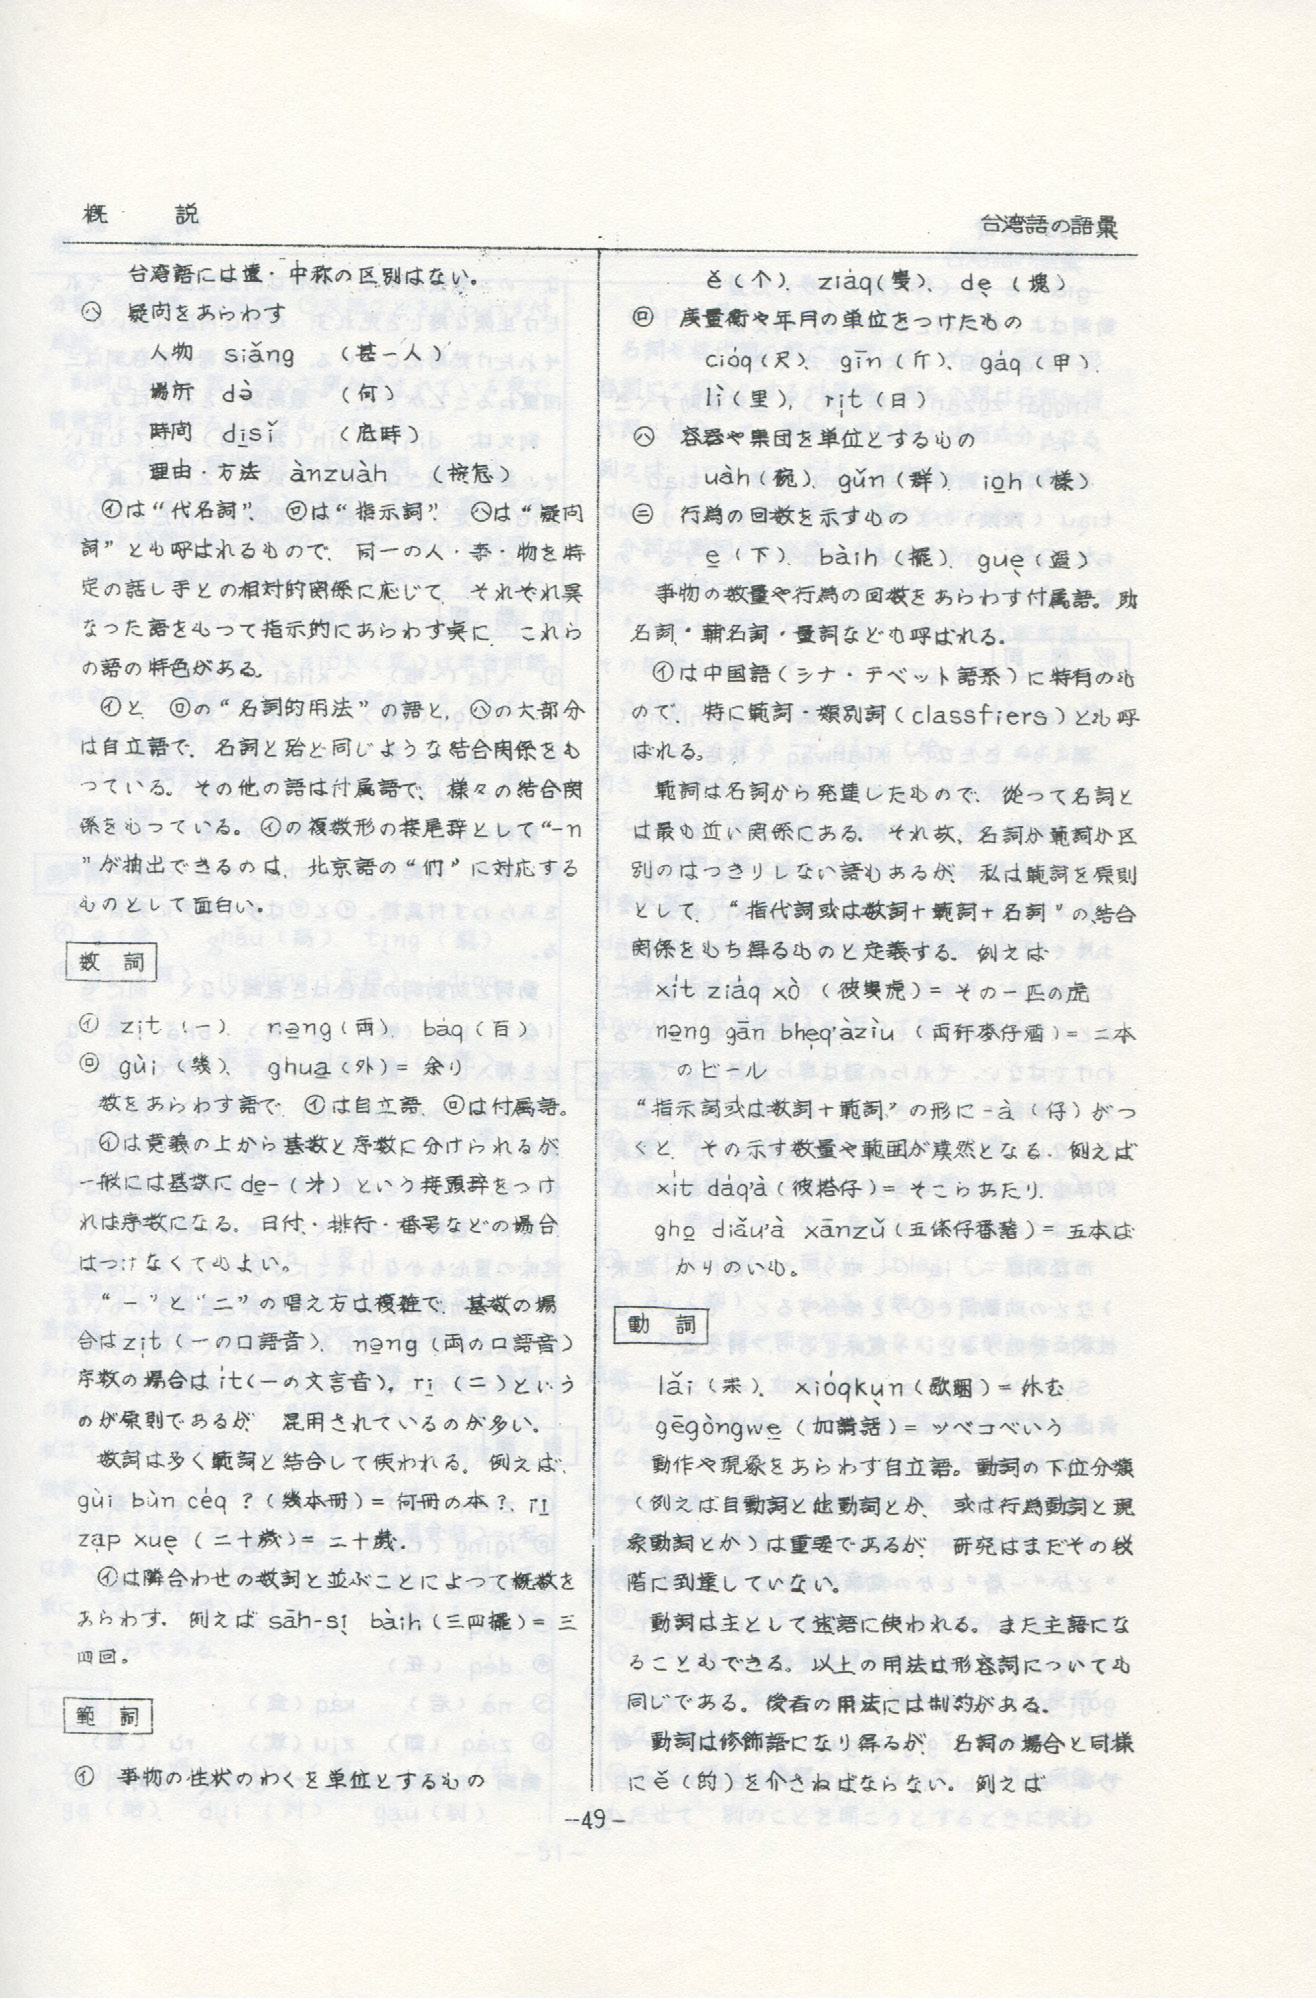 概 説
台湾語の語彙
台湾語には遠・中称の区別はない。
㋩ 疑问をあらわす
人物 siǎng （甚一人）
場所 də̀ （何）
時间 di̱sǐ （底時）
理由・方法 ànzuàh （按怎）
㋑は“代名詞”、㋺は“指示詞”、㋩は“疑问
詞”とも呼ばれるもので、同一の人・事・物を特
定の話し手との相対的関係に応じて、それぞれ異
なった語をもって指示的にあらわす点に、これら
の語の特色がある。
㋑と、㋺の“名詞的用法”の語と、㋩の大部分
は自立語で、名詞と殆と同じような結合関係をも
っている。その他の語は付属語で、様々の結合関
係をもっている。㋑の複数形の接尾辞として“-n
”が抽出できるのは、北京語の“们”に対応する
ものとして面白い。
数 詞
㋑ zi̍t （一）、 nə̱ng（両）、 báq（百）
㋺ gùi （幾）、 ghua̱（外）= 余り
数をあらわす語で、㋑は自立語、㋺は付属語。
㋑は意義の上から基数と序数に分けられるが、
一般には基数に de̱-（才）という接頭辞をつけ
れば序数になる。日付・排行・番号などの場合
はつけなくてもよい。
“一”と“二”の唱え方は複雑で、基数の場
合はzi̍t（一の口語音）、nə̱ng（両の口語音）
序数の場合は ít（一の文言音）、ri̱（二）という
のが原則であるが、混用されているのが多い。
数詞は多く範詞と結合して使われる。例えば、
gùi bùn céq ?（幾本冊）= 何冊の本?、ri̱
za̍p xuə̱（二十歲）= 二十歲.
㋑は隣合わせの数詞と並ぶことによって概数を
あらわす. 例えば sāh-sì̱ bàih（三四擺）= 三
四回。
範 詞
㋑ 事物の性状のわくを単位とするもの
ě（个）、ziáq（隻）、də̱（塊）
㋺ 度量衡や年月の単位をつけたもの
cióq（尺）、gīn（斤）、gáq（甲）、
lì（里）, ri̍t（日）
㋩ 容器や集団を単位とするもの
uàh（碗）、gǔn（群）、io̱h（樣）
㋥ 行為の回数を示すもの
e̱（下）、bàih（擺）、guə̱（過）
事物の数量や行為の回数をあらわす付属語。助
名詞・輔名詞・量詞などとも呼ばれる。
㋑は中国語（シナ・チベット語系）に特有のも
ので、特に範詞・類別詞（classfiers）とも呼
ばれる。
範詞は名詞から発達したもので、従って名詞と
は最も近い関係にある。それ故、名詞か範詞か区
別のはっきりしない語もあるが、私は範詞を原則
として、“指代詞或は数詞+範詞+名詞”の結合
関係をもち得るものと定義する。例えば
xít ziáq xò （彼隻虎）= その一匹の虎
nə̱ng gān bhe̍q'àzìu（両矸麥仔酒）= 二本
のビール
“指示詞或は数詞+範詞”の形に-à（仔）がつ
くと、その示す数量や範囲が漠然となる. 例えば
xít dáq'à（彼搭仔）= そこらあたり、
gho̱ diǎu'à xānzǔ（五條仔番薯）= 五本ば
かりのいも。
動 詞
lǎi（来）、xióqkùn（歇睏）= 休む
gēgòngwe̱（加講話）= ツベコベいう
動作や現象をあらわす自立語。動詞の下位分類
（例えば自動詞と他動詞とか、或は行為動詞と現
象動詞とか）は重要であるが、研究はまだその段
階に到達していない。
動詞は主として述語に使われる。また主語にな
ることもできる。以上の用法は形容詞についても
同じである。後者の用法には制約がある。
動詞は修飾語になり得るが、名詞の場合と同様
にě（的）を介さねばならない。例えば
-49-